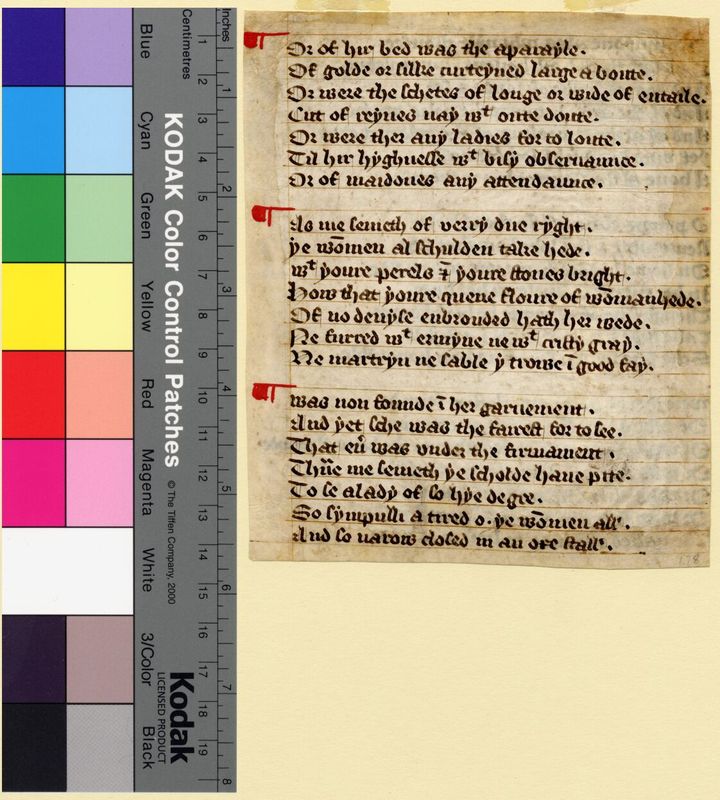 Or of hir bed was the aparayle.
Of golde or silke curteyned large a boute.
Or were the schetes of longe or wide of entaile.
Cut of reynes nay wᵗ oute doute.
Or were ther any ladies for to loute.
Til hir hyghnesse wᵗ bisy obseruaunce.
Or of maidones any attendaunce.
As me semeth of verry due ryght.
ye wōmen al schulden take hede.
wᵗ youre perels ⁊ youre stones bright.
How that youre quene floure of wōmanhede.
Of no deuyse enbrouded hath her wede.
Ne furred wᵗ ermyne ne wᵗ cristy gray.
Ne martryn ne sable y trowe ī good fay.
was non founde ī her garnement.
And yet sche was the fairest for to see.
That eū was vnder the firmament.
Thāne me semeth ye scholde haue pite.
To se a lady of so hye degre.
So sympulli a tired o. ye wōmen all.
And so narow closed in an oxe stall.
178
Inches
Centimetres
1 2 3 4 5 6 7 8
1 2 3 4 5 6 7 8 9 10 11 12 13 14 15 16 17 18 19
KODAK Color Control Patches
© The Tiffen Company, 2000
Kodak
LICENSED PRODUCT
Blue
Cyan
Green
Yellow
Red
Magenta
White
3/Color
Black